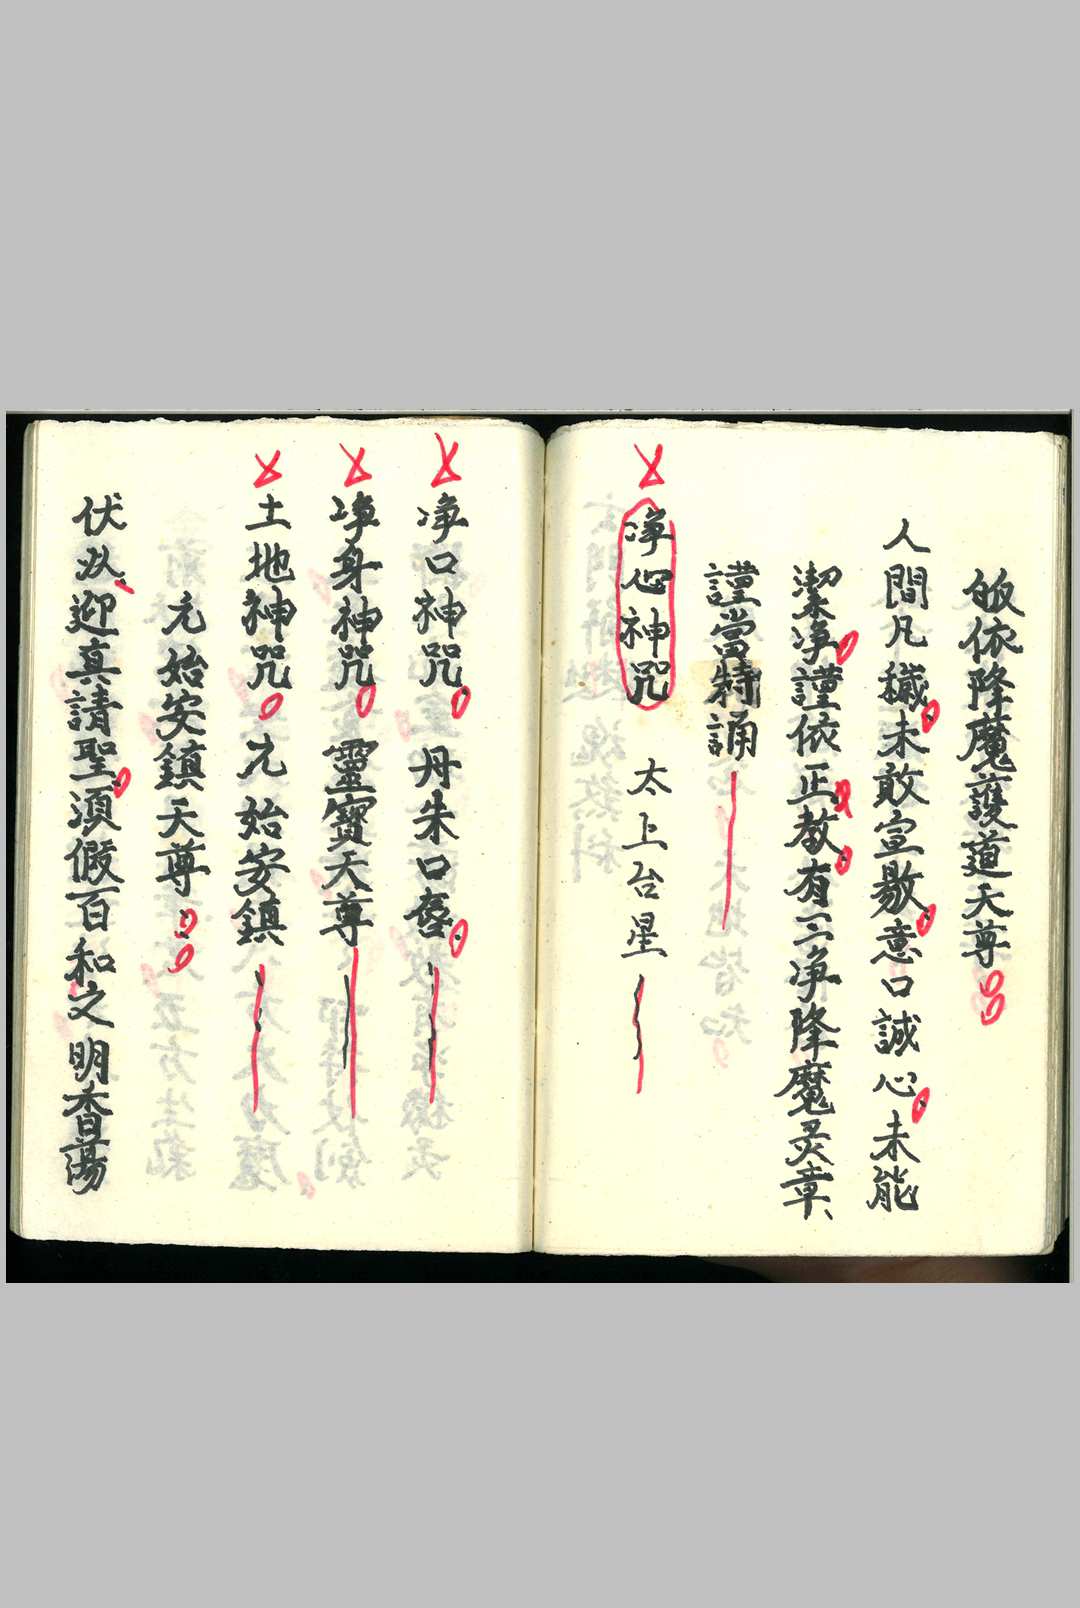 皈依降魔護道天尊
人間凡穢未敢宣敭意口誠心未能
潔净謹依正教有三净降魔灵章、
謹當特誦
净心神咒 太上台星
净口神咒 丹朱口
净身神咒 靈寶天尊
土地神咒 元始安鎮
元始安鎮天尊
伏以迎真請聖須假百和之明香蕩